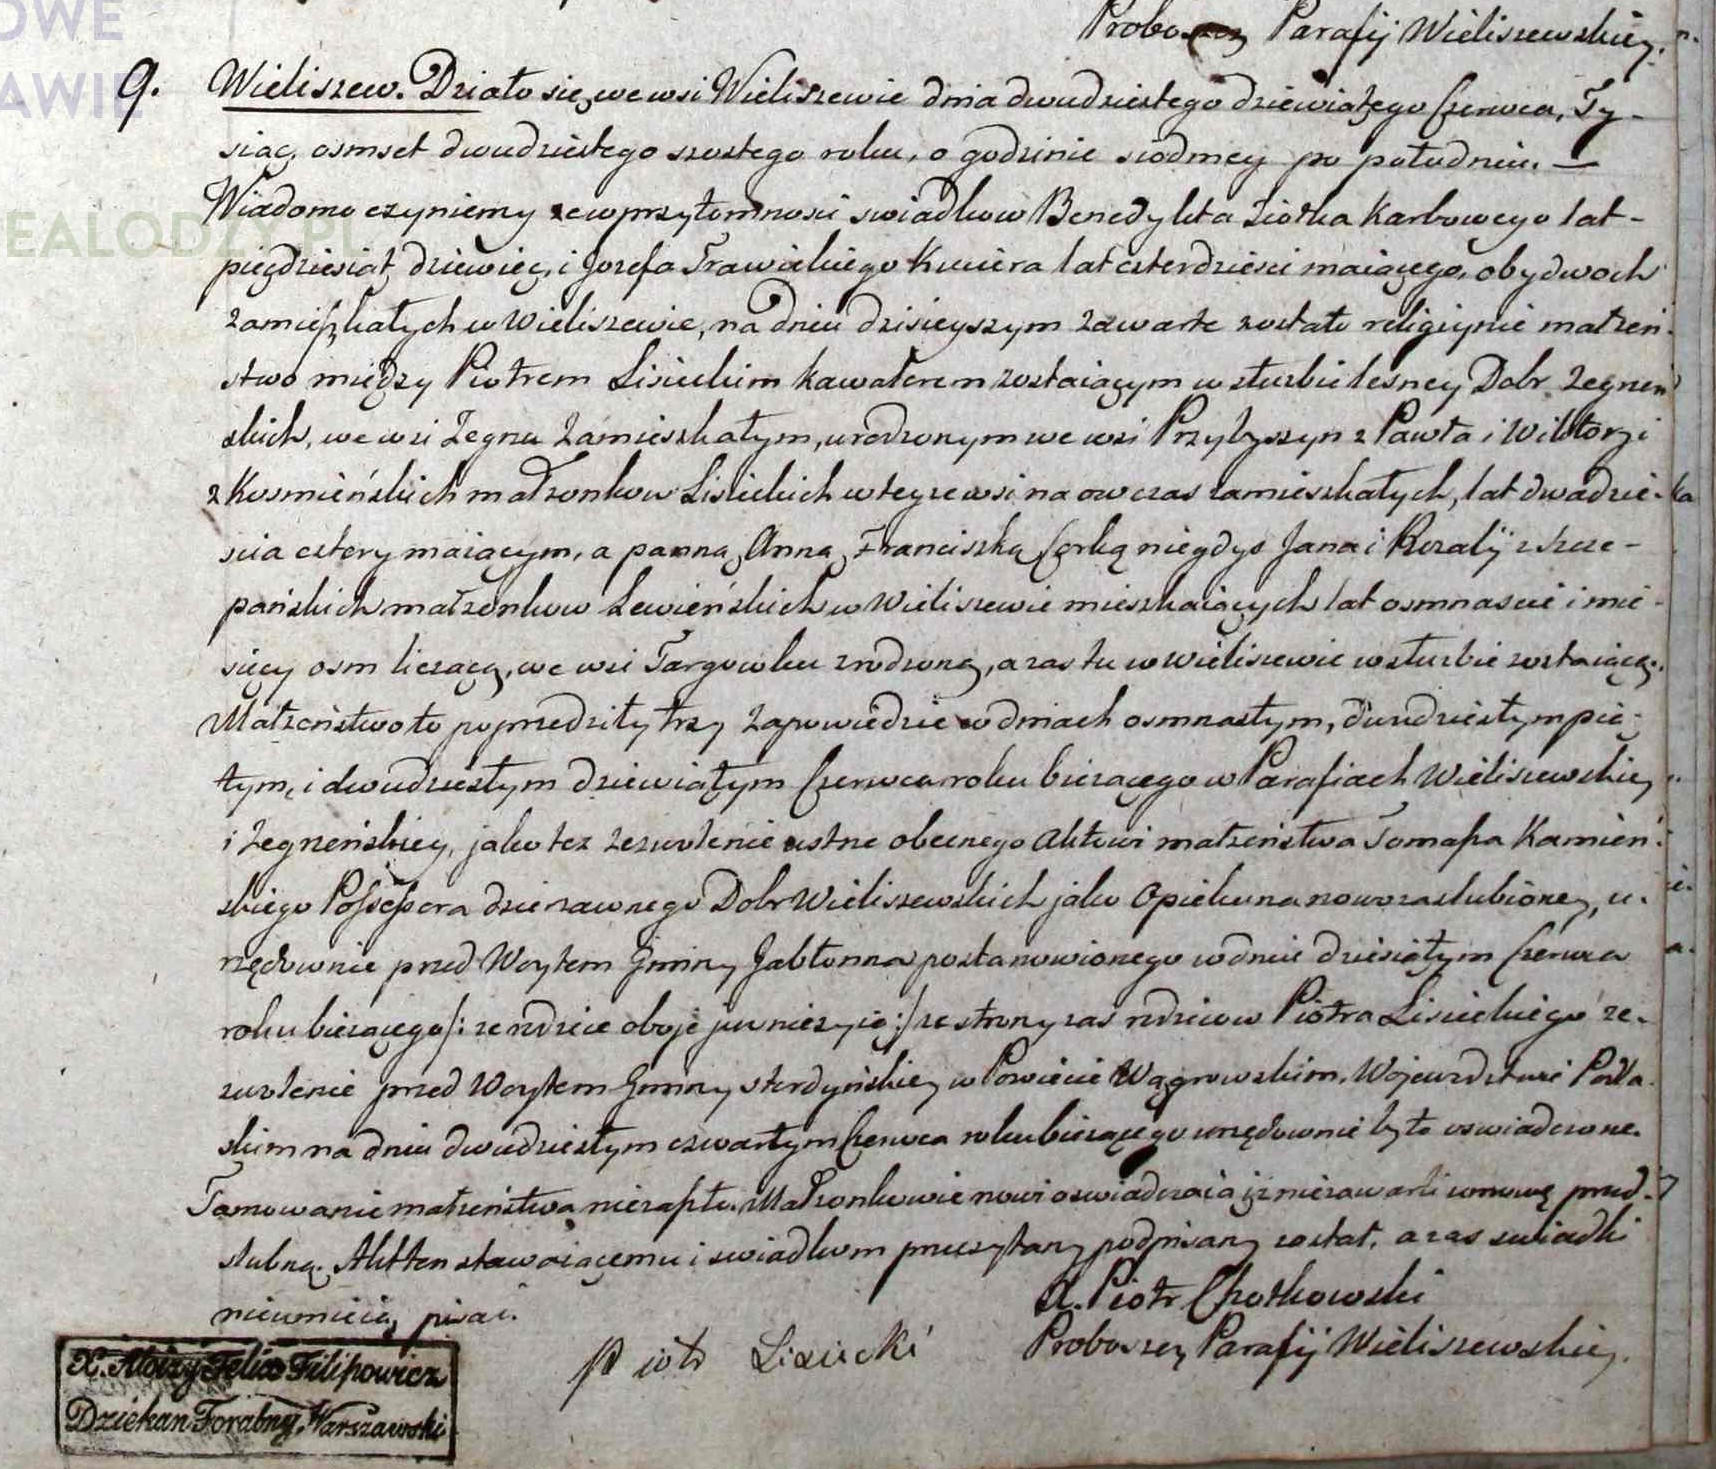 OWE
AWIE
EALODZY.PL
Proboszcz Parafij Wieliszewskiey.
9. Wieliszew. Działo się we wsi Wieliszewie dnia dwudziestego dziewiątego Czerwca, Ty-
siąc, osmset dwudziestego szostego roku, o godzinie siodmey po południu. —
Wiadomo czyniemy ze w przytomnosci swiadkow Benedykta Ziołka Karbowego lat-
pięćdziesiąt dziewięc, i Jozefa Trawickiego Kuciera lat czterdziesci maiącego, obydwoch
zamieszkałych w Wieliszewie, na dniu dzisieyszym zawarte zostało religiynie małzeń-
stwo między Piotrem Lisieckim kawalerem zostaiącym w słuzbie lesney Dobr Zegrzeń
skich, we wsi Zegrzu zamieszkałym, urodzonym we wsi Przybyszyn z Pawła i Wiktoryi
z Kosmieńskich małzonkow Lisieckich w teyze wsi na owczas zamieszkałych, lat dwadzie-
scia cztery maiącym, a panną Anną Franciszką Corką niegdys Jana i Rozalij z Szcze-
pańskich małzonkow Lewieńskich w Wieliszewie mieszkaiących lat osmnascie i mie-
sięcy osm liczącą, we wsi Targowku zrodzoną, a zas tu w Wieliszewie w słuzbie zostaiącą.
Małzeństwo to poprzedziły trzy zapowiedzie w dniach osmnastym, dwudziestym pią-
tym, i dwudziestym dziewiątym Czerwca roku biezącego w Parafiach Wieliszewskiey
i Zegrzeńskiey, jako tez zezwolenie ustne obecnego Aktowi małzeństwa Tomasza Kamień-
skiego Possessora dzierzawnego Dobr Wieliszewskich jako Opiekuna nowozaslubioney, u-
rzędownie przed Woytem Gminy Jabłonna postanowionego w dniu dziesiątym Czerwca
roku biezącego /: ze rodzice oboje juz niezyią :/ ze strony zas rodzicow Piotra Lisieckiego ze-
zwolenie przed Woytem Gminy Sterdyńskiey w Powiecie Węgrowskim, Wojewodztwie Podla-
skim na dniu dwudziestym czwartym Czerwca roku biezącego urzędownie było oswiadczone.
Tamowanie małzeństwa niezaszło. Małzonkowie nowi oswiadczaią iz niezawarli umowę przed-
slubną. Akt ten stawaiącemu i swiadkom przeczytany podpisany został, a zas swiadki
nieumieią pisac.
X. Piotr Chotkowski
Piotr Lisiecki Proboszcz Parafij Wieliszewskiey.
X. Aloizy Felix Filipowicz
Dziekan Foralny Warszawski